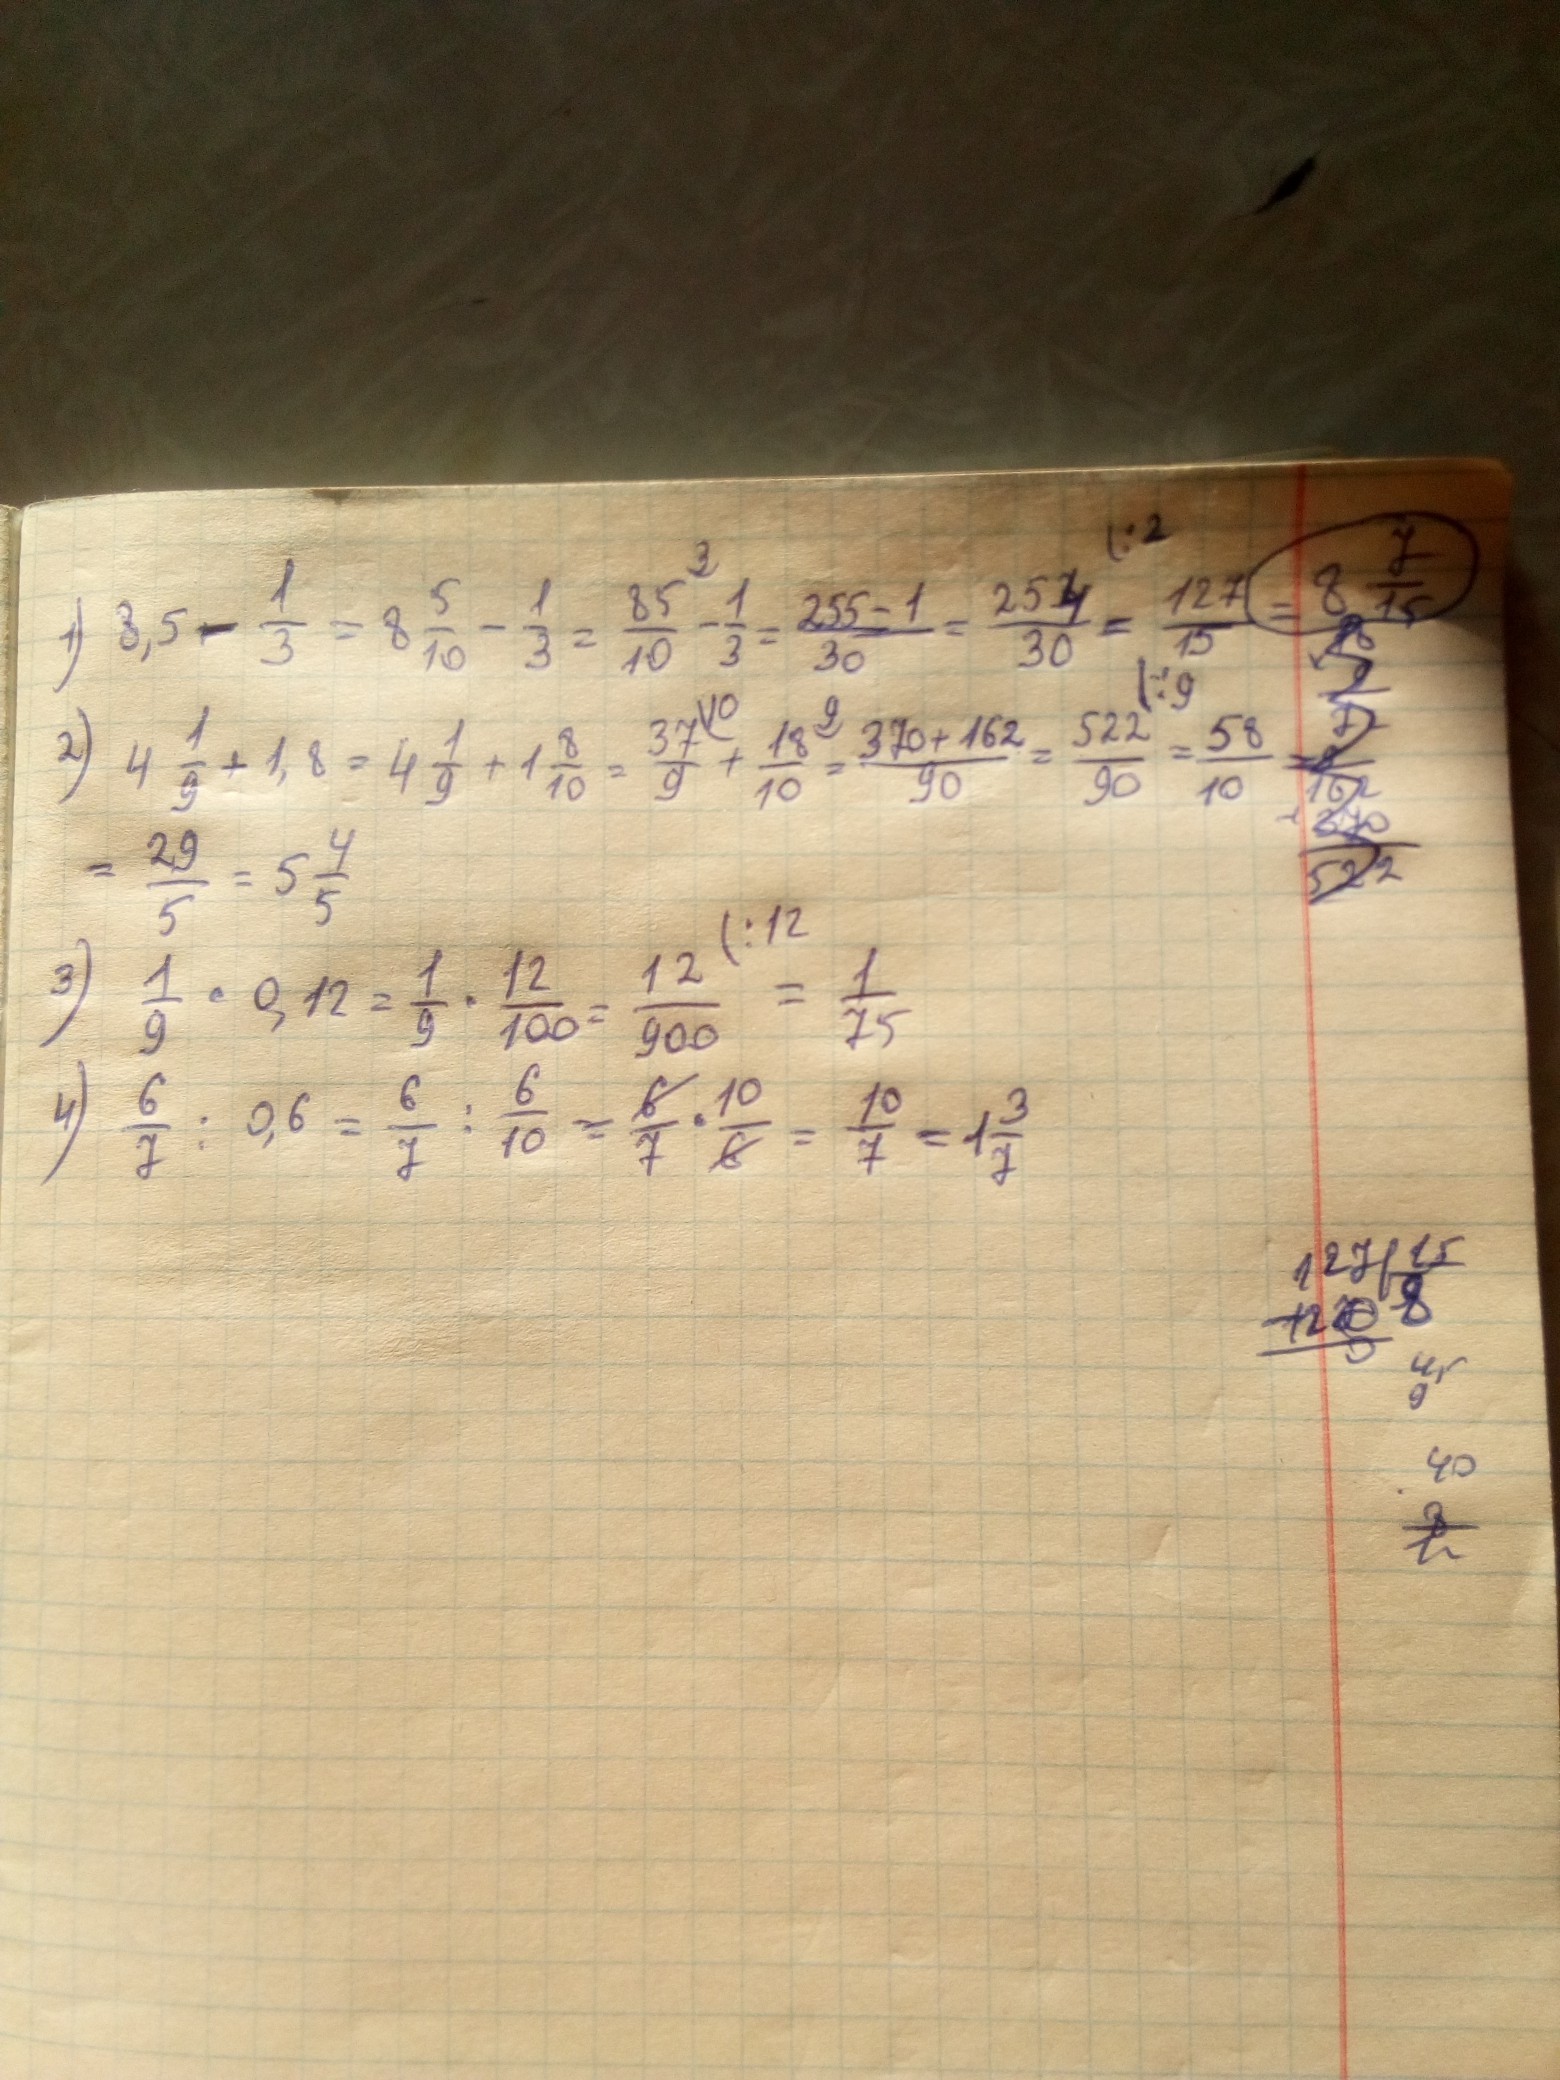 1) 8,5 - 1/3 = 8 5/10 - 1/3 = 85/10 ³ - 1/3 = 255-1/30 = 254/30 (:2 = 127/15 = 8 7/15
2) 4 1/9 + 1,8 = 4 1/9 + 1 8/10 = 37/9 (10 + 18/10 ⁹ = 370+162/90 = 522/90 (:9 = 58/10 =
= 29/5 = 5 4/5
162
370
522
3) 1/9 · 0,12 = 1/9 · 12/100 = 12/900 (:12 = 1/75
4) 6/7 : 0,6 = 6/7 : 6/10 = 6/7 · 10/6 = 10/7 = 1 3/7
127 15
8
40